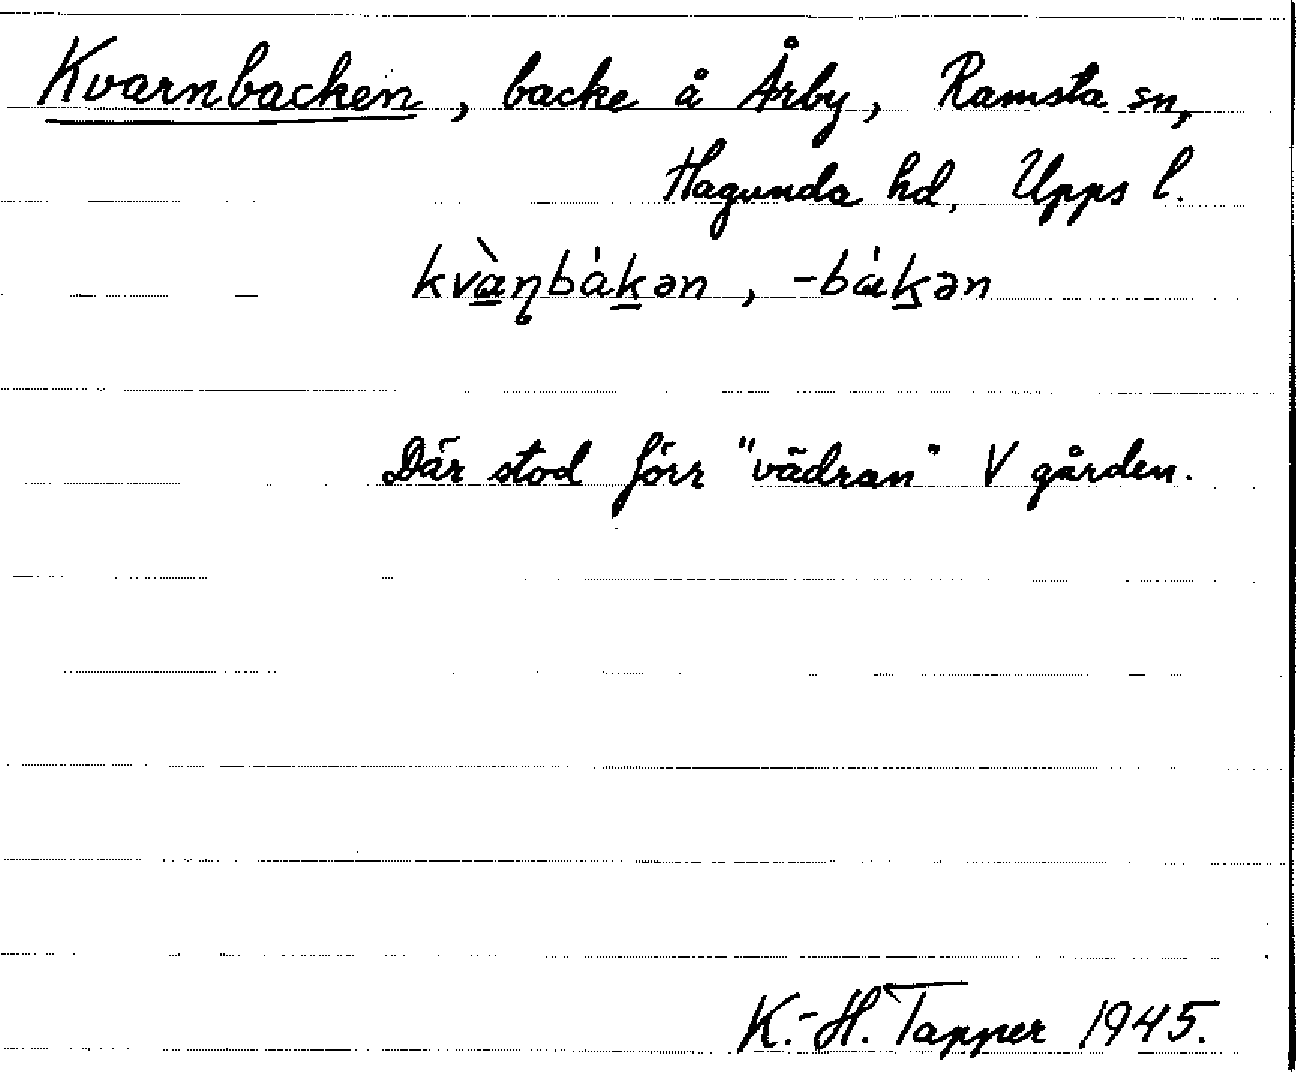 Kvarnbacken, backe å Årby, Ramsta sn,
Hagunda hd, Upps l.
kvà̱ɳbák̲ən, -bák̲ən
Där stod förr "vädran" V gården.
K.-H. Tapper 1945.